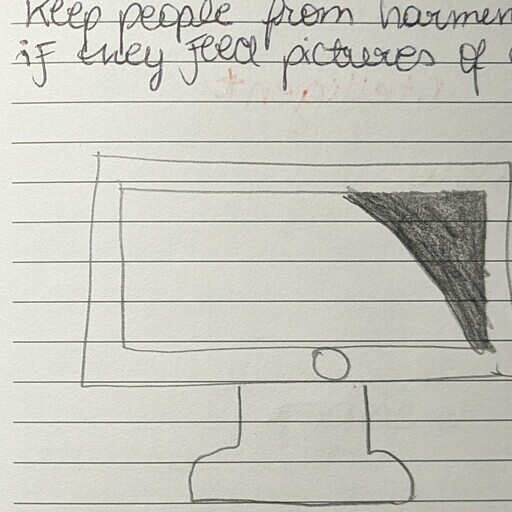 Keep people from
if they feed pictures of